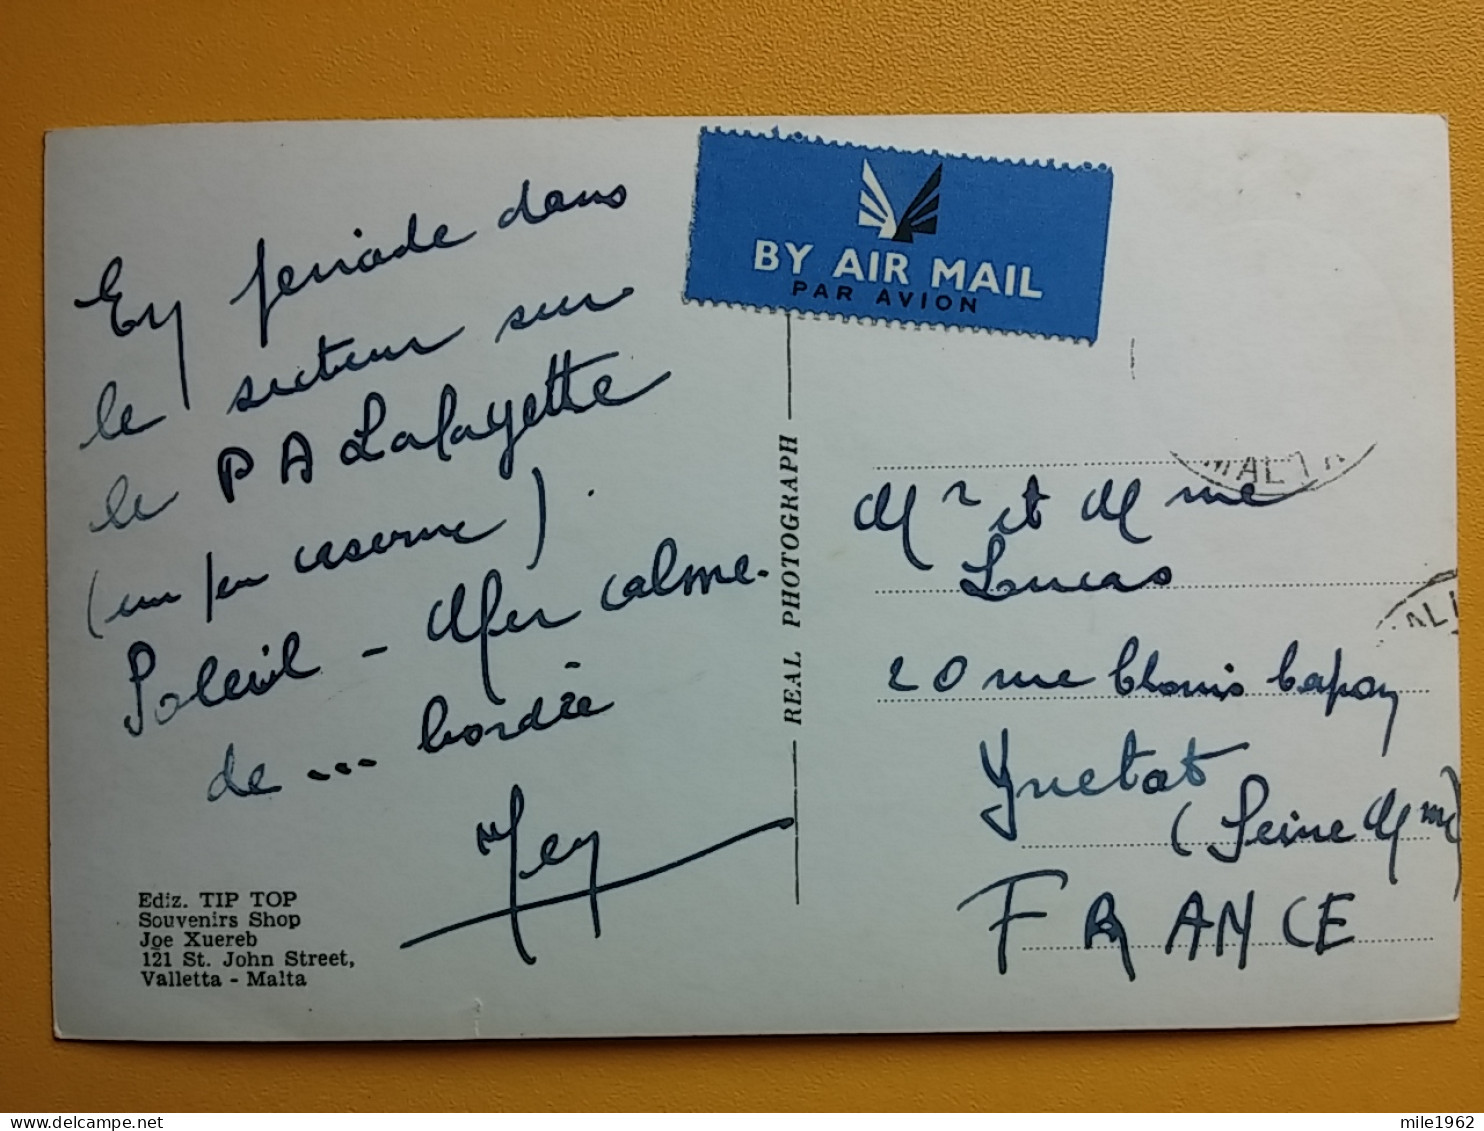 En periode dans
le secteur sur
le P A Lafayette
(un peu caserne).
Soleil - Mer calme.
de ... bordée
Ediz. TIP TOP
Souvenirs Shop
Joe Xuereb
121 St. John Street,
Valletta - Malta
REAL PHOTOGRAPH
BY AIR MAIL
PAR AVION
MALTA
Mr et Mme
Lucas
20 rue Clovis
Yvetot
(Seine Mme)
FRANCE
mile1962